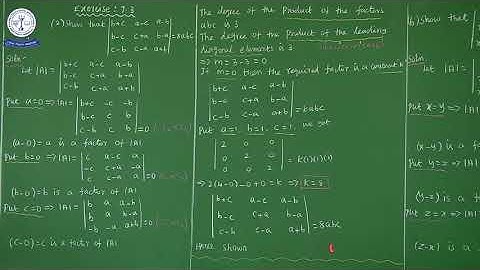 Exercise: 7.3
(2) Show that | b+c a-c a-b |
| b-c c+a b-a | = 8abc
| c-b c-a a+b |
Soln:
Let |A| = | b+c a-c a-b |
| b-c c+a b-a |
| c-b c-a a+b |
Put a=0 ⇒ |A| = | b+c -c -b |
| b-c c b |
| c-b c b | = 0
(a-0)=a is a factor of |A|
Put b=0 ⇒ |A| = | c a-c a |
| -c c+a -a |
| c c-a a | = 0
(b-0)=b is a factor of |A|
Put c=0 ⇒ |A| = | b a a-b |
| b a b-a |
| -b -a a+b | = 0
(c-0)=c is a factor of |A|
The degree of the product of the factors
abc is 3
The degree of the product of the leading
diagonal elements is 3
⇒ m = 3-3 = 0
If m=0 then the required factor is a constant k
| b+c a-c a-b |
| b-c c+a b-a | = kabc
| c-b c-a a+b |
Put a=1, b=1, c=1, we get
| 2 0 0 |
| 0 2 0 | = k(1)(1)(1)
| 0 0 2 |
⇒ 2(4-0)-0+0 = k ⇒ k=8
| b+c a-c a-b |
| b-c c+a b-a | = 8abc
| c-b c-a a+b |
Hence Shown
Show that
Soln
Let |A| =
Put x=y ⇒ |A|
(x-y) is a
Put y=z ⇒ |A|
(y-z) is a
Put z=x ⇒ |A|
(z-x) is a